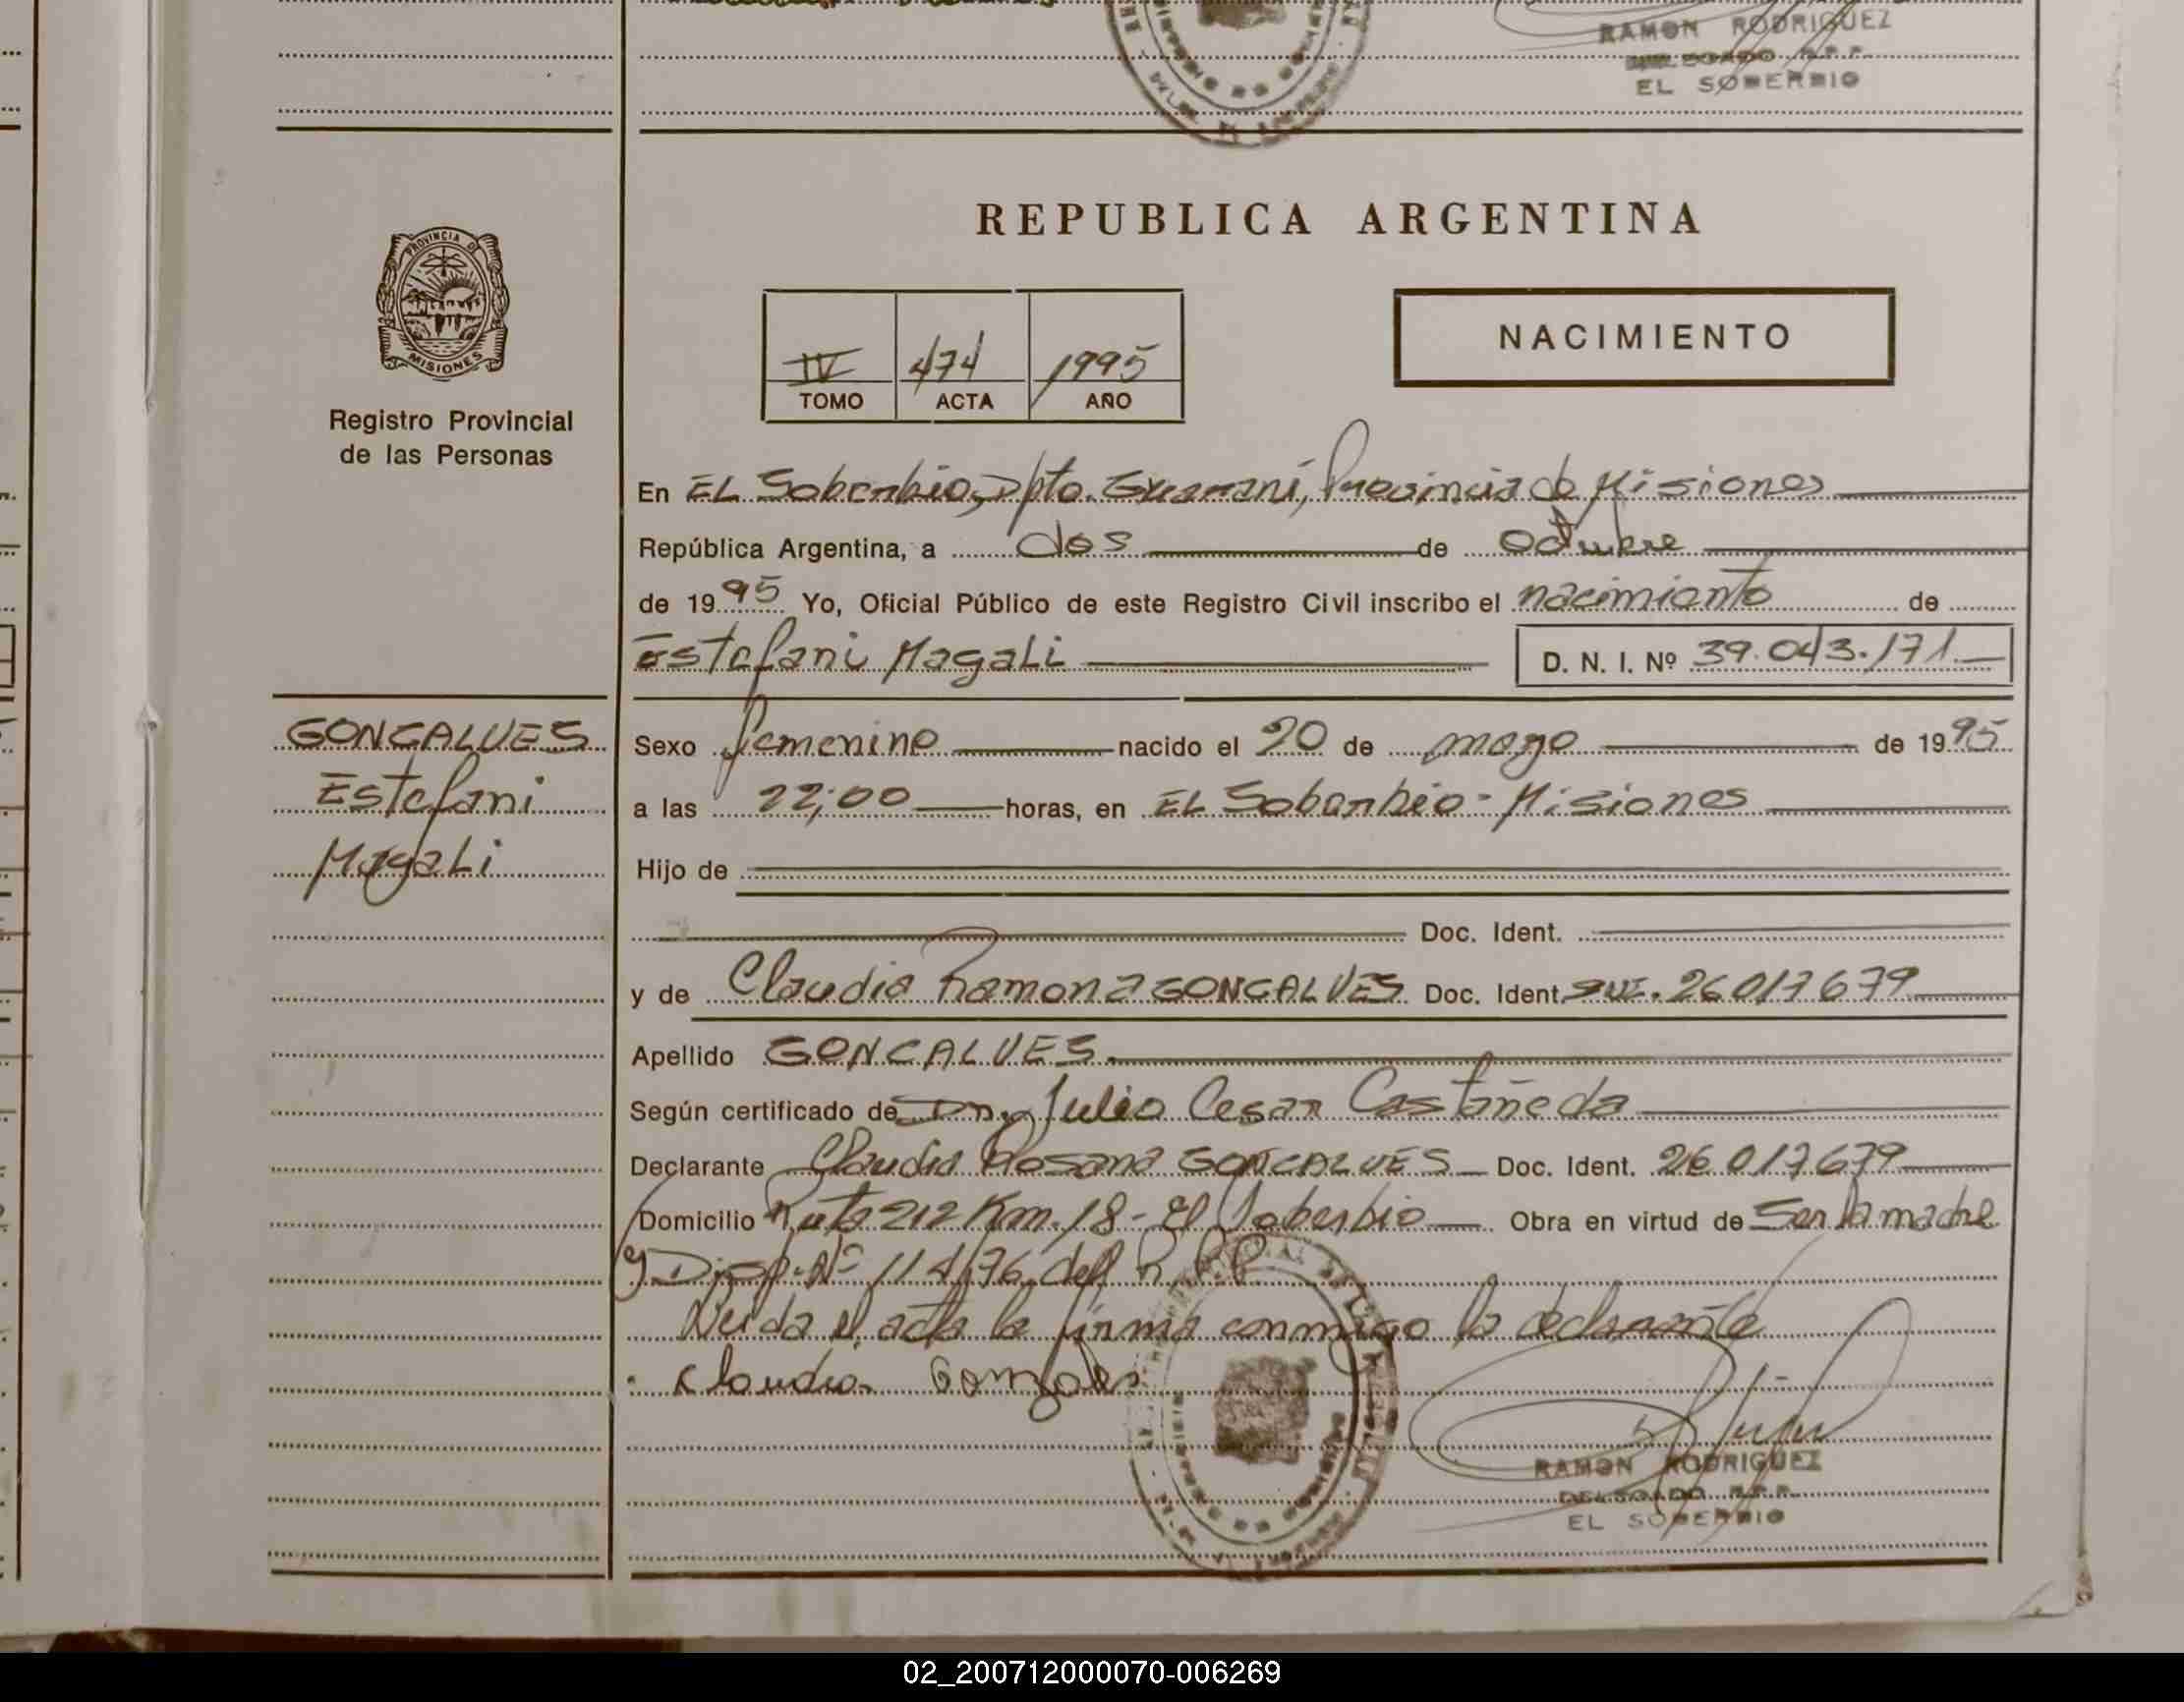 RAMON RODRIGUEZ
EL SOBERBIO
REPUBLICA ARGENTINA
PROVINCIA D
MISIONES
IV 474 1995
TOMO ACTA AÑO
NACIMIENTO
Registro Provincial
de las Personas
En EL Soberbio, Dpto. Guaraní, Provincia de Misiones
República Argentina, a dos de octubre
de 1995 Yo, Oficial Público de este Registro Civil inscribo el nacimiento de
Estefani Magali D. N. I. Nº 39.043.171
GONCALVES
Estefani
Magali
Sexo femenino nacido el 20 de mayo de 1995
a las 22,00 horas, en EL Soberbio - Misiones
Hijo de
Doc. Ident.
y de Claudia Ramona GONCALVES Doc. Ident. 26017679
Apellido GONCALVES.
Según certificado de Dr. Julio Cesar Castañeda
Declarante Claudia Rosana GONCALVES Doc. Ident. 26017679
Domicilio Ruta 212 Km. 18 - El Soberbio Obra en virtud de Ser la madre
y Disp. Nº 114/76 del R.P.P.
Leida el acta la firma conmigo la declarante
Claudia
RAMON RODRIGUEZ
DELEGADO R.P.P.
EL SOBERBIO
02_200712000070-006269